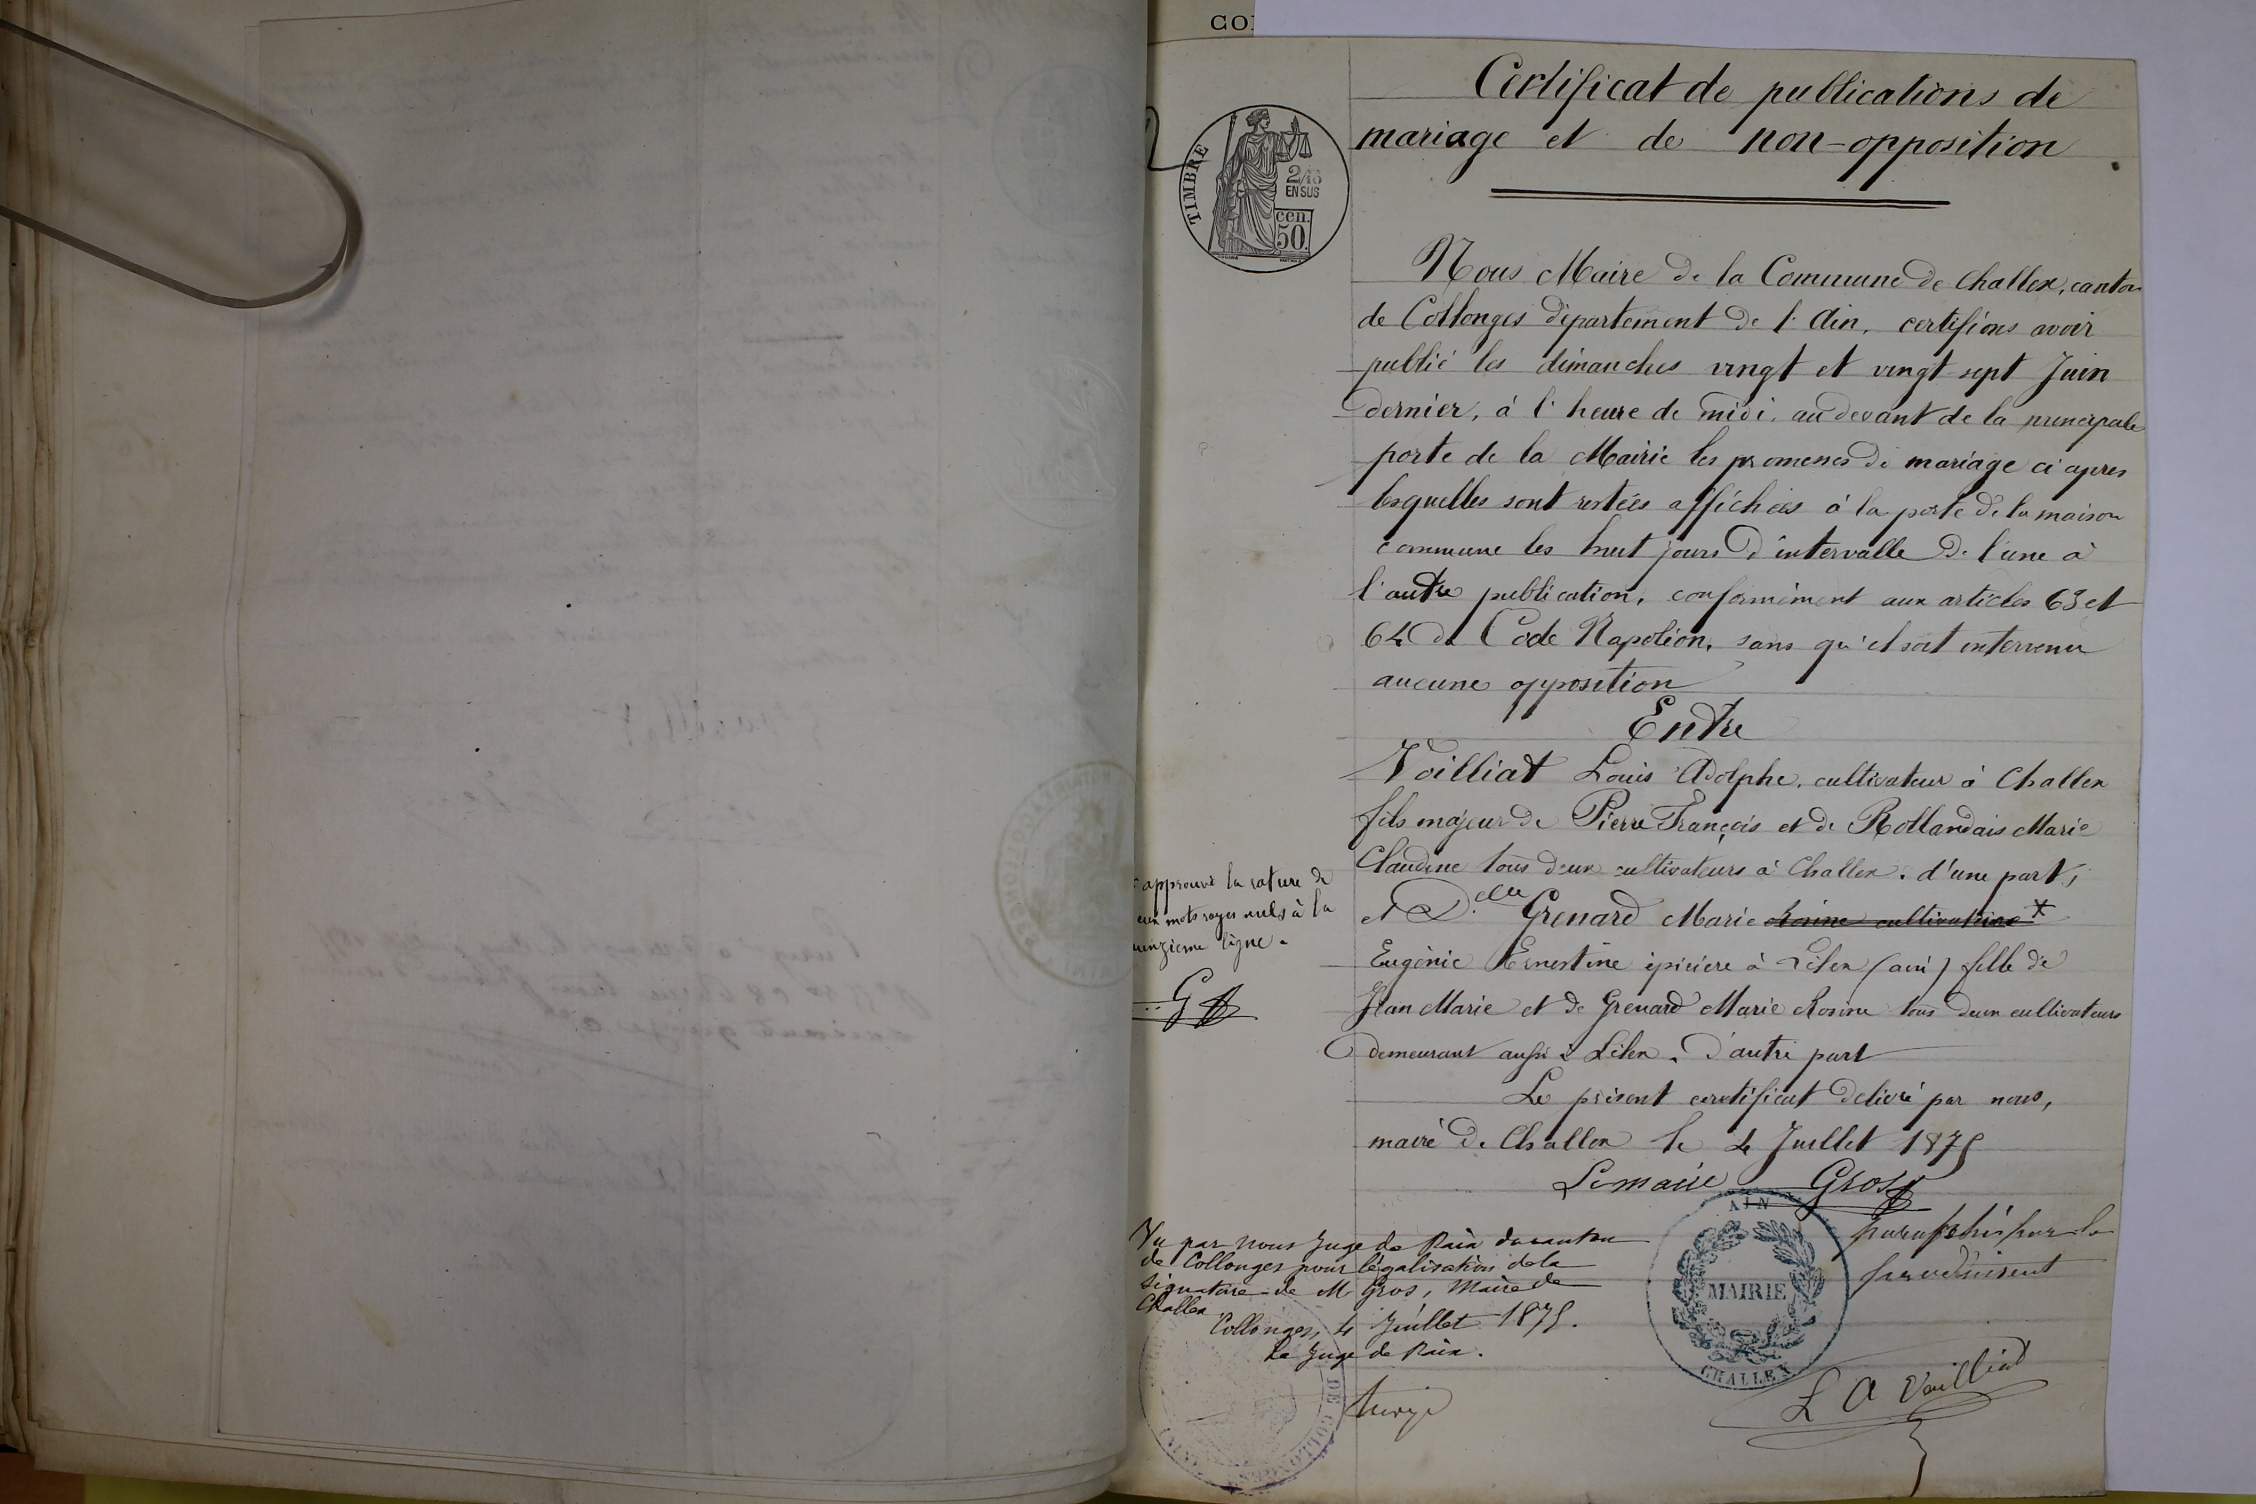 CO
TIMBRE
2/10
EN SUS
cen.
50.
Certificat de publications de
mariage et de non-opposition
Nous Maire de la Commune de Challex, canton
de Collonges département de l'Ain, certifions avoir
publié les dimanches vingt et vingt sept Juin
dernier, à l'heure de midi, au devant de la principale
porte de la Mairie les promesses de mariage ci apres
lesquelles sont restées affichées à la porte de la maison
commune les huit jours d'intervalle de l'une à
l'autre publication, conformément aux articles 63 et
64 du Code Napoléon, sans qu'il soit intervenu
aucune opposition
Entre
Voilliat Louis Adolphe, cultivateur à Challex
fils majeur de Pierre François et de Rollandais Marie
Claudine tous deux cultivateurs à Challex, d'une part,
et D.elle Grenard Marie Rosine cultivatrice *
Eugénie Ernestine épicière à Lélex (ain) fille de
Jean Marie et de Grenard Marie Rosine tous deux cultivateurs
demeurant aussi à Lélex, d'autre part
Le présent certificat délivré par nous,
maire de Challex le 4 Juillet 1875
Le maire Gros
approuvé la rature de
mots rayés nuls à la
ligne.
G
Vu par nous Juge de Paix du canton
de Collonges pour légalisation de la
signature de M Gros, Maire de
Challex
Collonges, 4 Juillet 1875.
Le Juge de Paix.
AIN
MAIRIE
CHALLEX
paraphé par le
L A Voilliat
DE COLLONGES